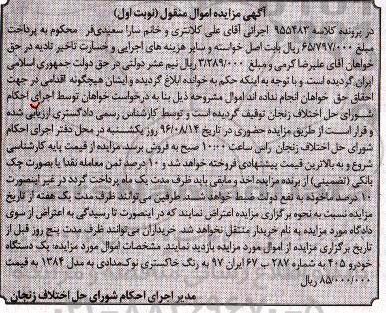 آگهی مزایده اموال منقول (نوبت اول)
در پرونده کلاسه ۹۵۵۴۸۲ اجرائی آقای علی کلانتری و خانم سارا سعیدی‌فر محکوم به پرداخت
مبلغ ۶۵/۷۹۷/۰۰۰ ریال بابت اصل خواسته و سایر هزینه های اجرایی و خسارت تاخیر تادیه در حق
خواهان آقای علیرضا کرمی و مبلغ ۳/۲۸۹/۰۰۰ ریال نیم عشر دولتی در حق دولت جمهوری اسلامی
ایران گردیده است و با توجه به اینکه حکم به خوانده ابلاغ گردیده و ایشان هیچگونه اقدامی در جهت
احقاق حق خواهان انجام نداده اند اموال مشروحه ذیل بنا به درخواست خواهان توسط اجرای احکام
شورای حل اختلاف زنجان توقیف گردیده است و توسط کارشناس رسمی دادگستری ارزیابی شده
و قرار است از طریق مزایده حضوری در تاریخ ۹۶/۰۸/۱۴ روز یکشنبه در محل دفتر اجرای احکام
شورای حل اختلاف زنجان راس ساعت ۱۰:۰۰ صبح به فروش برسد. مزایده از قیمت پایه کارشناسی
شروع و به بالاترین قیمت پیشنهادی فروخته خواهد شد و ۱۰ درصد ثمن معامله نقدا یا بصورت چک
بانکی (تضمینی) از برنده مزایده اخذ و مابقی باید ظرف مدت یک ماه پرداخت گردد در غیر اینصورت
۱۰ درصد ماخوذه به نفع دولت ضبط خواهد شد. طرفین می‌توانند ظرف مدت یک هفته از تاریخ
مزایده نسبت به نحوه برگزاری مزایده اعتراض نمایند که در اینصورت تا رسیدگی به اعتراض از سوی
دادگاه مورد مزایده به نام خریدار منتقل نخواهد شد. خریداران می‌توانند ظرف مدت پنج روز قبل از
تاریخ برگزاری مزایده از اموال مورد مزایده بازدید نمایند. مشخصات اموال مورد مزایده: یک دستگاه
خودرو ۴۰۵ به شماره ۲۸۷ ب ۶۷ ایران ۹۷ به رنگ خاکستری نوک‌مدادی به مدل ۱۳۸۴ به قیمت
۸۵/۰۰۰/۰۰۰ ریال
مدیر اجرای احکام شورای حل اختلاف زنجان